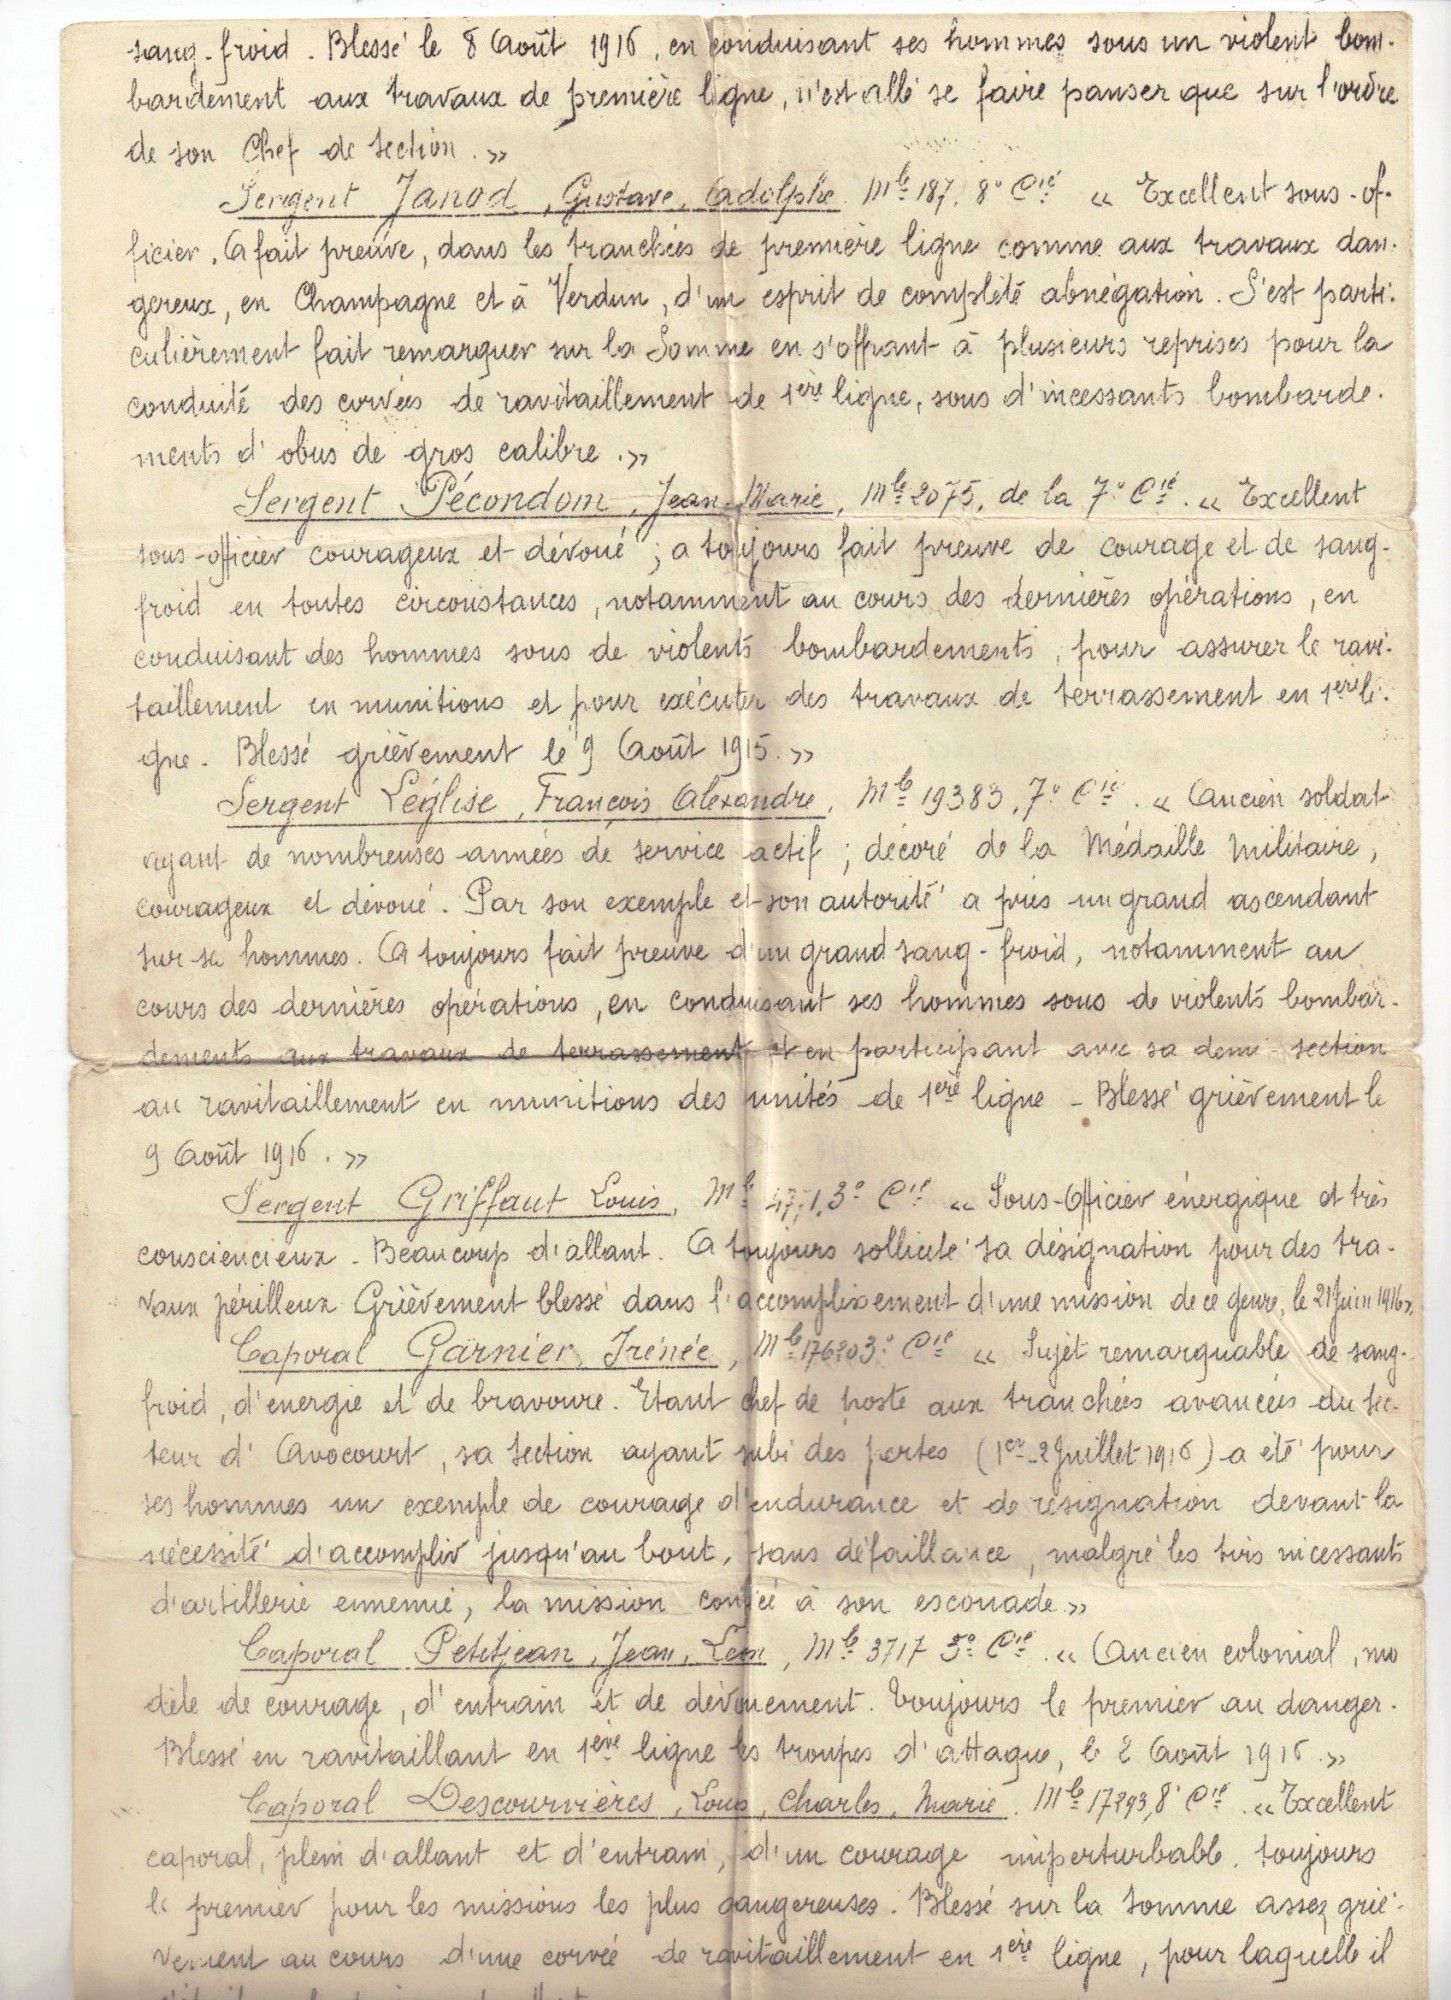 sang-froid. Blessé le 8 Août 1916, en conduisant ses hommes sous un violent bom-
bardement aux travaux de première ligne, n'est allé se faire panser que sur l'ordre
de son Chef de section. »
Sergent Janod, Gustave, Adolphe. Mle 187. 8e Cie « Excellent sous-of-
ficier. A fait preuve, dans les tranchées de première ligne comme aux travaux dan-
gereux, en Champagne et à Verdun, d'un esprit de complète abnégation. S'est parti-
culièrement fait remarquer sur la Somme en s'offrant à plusieurs reprises pour la
conduite des corvées de ravitaillement de 1ère ligne, sous d'incessants bombarde-
ments d'obus de gros calibre. »
Sergent Pécondom, Jean-Marie, Mle 2075, de la 7e Cie. « Excellent
sous-officier courageux et dévoué ; a toujours fait preuve de courage et de sang-
froid en toutes circonstances, notamment au cours des dernières opérations, en
conduisant des hommes sous de violents bombardements, pour assurer le ravi-
taillement en munitions et pour exécuter des travaux de terrassement en 1ère li-
gne. Blessé grièvement le 9 Août 1915. »
Sergent Léglise, François Alexandre, Mle 19383, 7e Cie. « Ancien soldat
ayant de nombreuses années de service actif ; décoré de la Médaille Militaire,
courageux et dévoué. Par son exemple et son autorité a pris un grand ascendant
sur se hommes. A toujours fait preuve d'un grand sang-froid, notamment au
cours des dernières opérations, en conduisant ses hommes sous de violents bombar-
dements aux travaux de terrassement et en participant avec sa demi-section
au ravitaillement en munitions des unités de 1ère ligne - Blessé grièvement le
9 Août 1916. »
Sergent Griffaut Louis, Mle 3e Cie « Sous-Officier énergique et très
consciencieux. Beaucoup d'allant. A toujours sollicité sa désignation pour des tra-
vaux périlleux Grièvement blessé dans l'accomplissement d'une mission de ce genre, le 21 Juin 1916 ».
Caporal Garnier, Irénée, Mle 3e Cie « Sujet remarquable de sang-
froid, d'énergie et de bravoure. Etant chef de poste aux tranchées avancées du sec-
teur d'Avocourt, sa section ayant subi des pertes (1er-2 Juillet 1916) a été pour
ses hommes un exemple de courage d'endurance et de résignation devant la
nécessité d'accomplir jusqu'au bout, sans défaillance, malgré les tirs incessants
d'artillerie ennemie, la mission confiée à son escouade »
Caporal Petitjean, Jean, Léon, Mle 3717 5e Cie. « Ancien colonial, mo
dèle de courage, d'entrain et de dévouement. Toujours le premier au danger.
Blessé en ravitaillant en 1ère ligne les troupes d'attaque, le 2 Août 1916. »
Caporal Descourvières, Louis, Charles, Marie. Mle 17293, 8e Cie. « Excellent
caporal, plein d'allant et d'entrain, d'un courage imperturbable. toujours
le premier pour les missions les plus dangereuses. Blessé sur la Somme assez griè-
vement au cours d'une corvée de ravitaillement en 1ère ligne, pour laquelle il